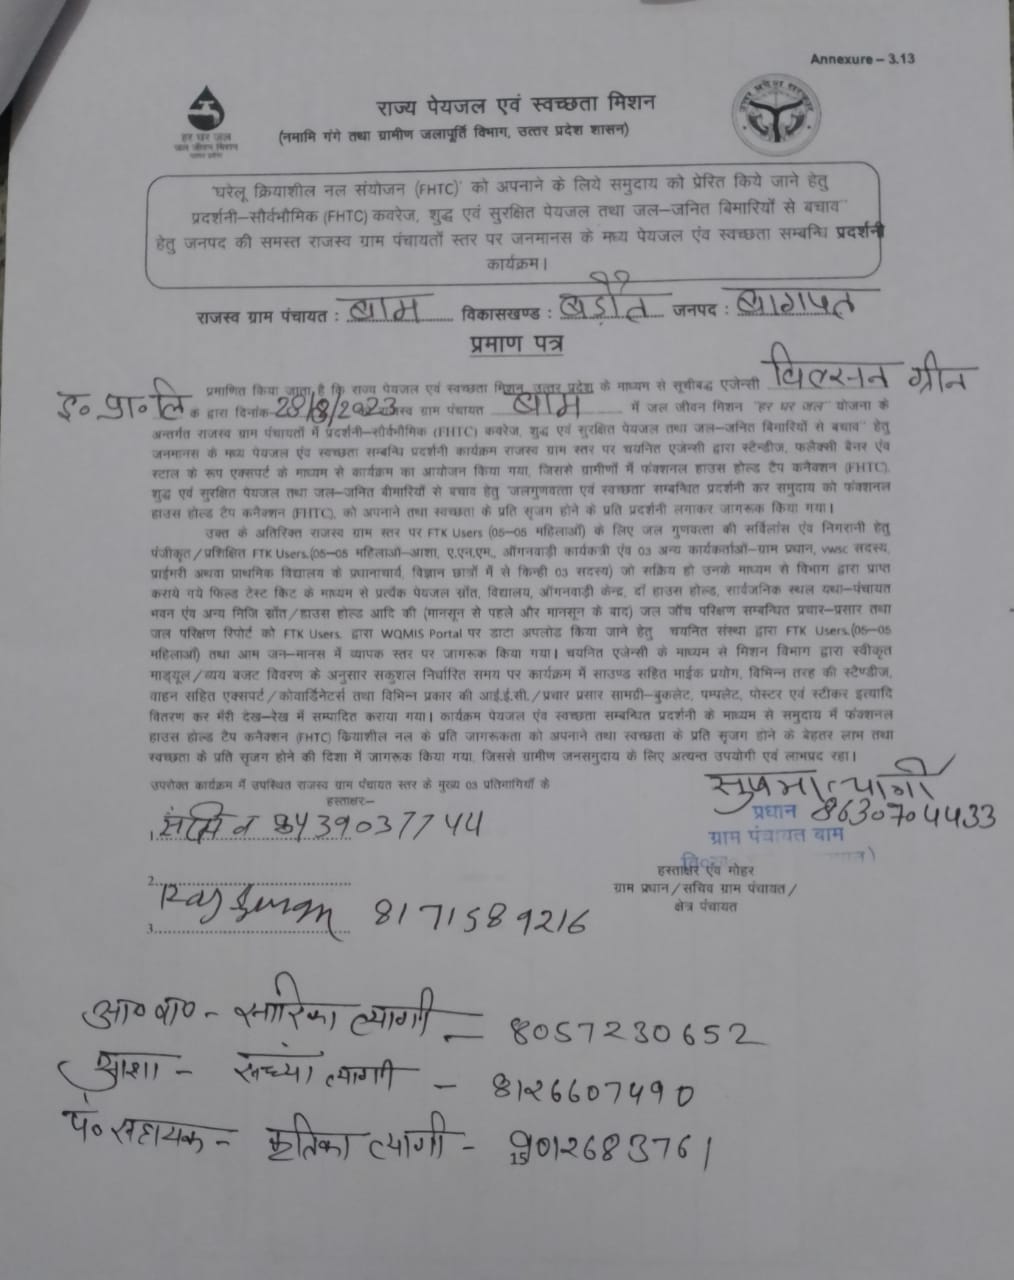 Annexure – 3.13
हर घर जल
जल जीवन मिशन
राज्य पेयजल एवं स्वच्छता मिशन
(नमामि गंगे तथा ग्रामीण जलापूर्ति विभाग, उत्तर प्रदेश शासन)
"घरेलू क्रियाशील नल संयोजन (FHTC)' को अपनाने के लिये समुदाय को प्रेरित किये जाने हेतु
प्रदर्शनी–सौर्वभौमिक (FHTC) कवरेज, शुद्ध एवं सुरक्षित पेयजल तथा जल–जनित बिमारियों से बचाव"
हेतु जनपद की समस्त राजस्व ग्राम पंचायतों स्तर पर जनमानस के मध्य पेयजल एंव स्वच्छता सम्बन्धि प्रदर्शनी
कार्यक्रम।
राजस्व ग्राम पंचायत : बाम विकासखण्ड : बड़ौत जनपद : बागपत
प्रमाण पत्र
प्रमाणित किया जाता है कि राज्य पेयजल एवं स्वच्छता मिशन, उत्तर प्रदेश के माध्यम से सूचीबद्ध एजेन्सी विल्सन ग्रीन
इ० प्रा० लि के द्वारा दिनांक 28/8/2023 राजस्व ग्राम पंचायत बाम में जल जीवन मिशन "हर घर जल" योजना के
अन्तर्गत राजस्व ग्राम पंचायतों में प्रदर्शनी–सौर्वभौमिक (FHTC) कवरेज, शुद्ध एवं सुरक्षित पेयजल तथा जल–जनित बिमारियों से बचाव" हेतु
जनमानस के मध्य पेयजल एंव स्वच्छता सम्बन्धि प्रदर्शनी कार्यक्रम राजस्व ग्राम स्तर पर चयनित एजेन्सी द्वारा स्टेन्डीज, फलैक्सी बैनर एंव
स्टाल के रूप एक्सपर्ट के माध्यम से कार्यक्रम का आयोजन किया गया, जिससे ग्रामीणों में फंक्शनल हाउस होल्ड टैप कनैक्शन (FHTC),
शुद्ध एवं सुरक्षित पेयजल तथा जल–जनित बीमारियों से बचाव हेतु 'जलगुणवत्ता एवं स्वच्छता' सम्बन्धित प्रदर्शनी कर समुदाय को फंक्शनल
हाउस होल्ड टैप कनैक्शन (FHTC), को अपनाने तथा स्वच्छता के प्रति सृजग होने के प्रति प्रदर्शनी लगाकर जागरूक किया गया।
उक्त के अतिरिक्त राजस्व ग्राम स्तर पर FTK Users (05–05 महिलाओं) के लिए जल गुणवत्ता की सर्विलांस एंव निगरानी हेतु
पंजीकृत/प्रशिक्षित FTK Users.(05–05 महिलाओं–आशा, ए.एन.एम., ऑगनवाड़ी कार्यकत्री एंव 03 अन्य कार्यकर्ताओं–ग्राम प्रधान, vwsc सदस्य,
प्राईमरी अथवा प्राथमिक विद्यालय के प्रधानाचार्य, विज्ञान छात्रों में से किन्ही 03 सदस्य) जो सक्रिय हो उनके माध्यम से विभाग द्वारा प्राप्त
कराये गये फिल्ड टेस्ट किट के माध्यम से प्रत्येक पेयजल स्रौत, विद्यालय, ऑगनवाड़ी केन्द्र, दॉ हाउस होल्ड, सार्वजनिक स्थल यथा–पंचायत
भवन एंव अन्य निजि स्रौत/हाउस होल्ड आदि की (मानसून से पहले और मानसून के बाद) जल जॉच परिक्षण सम्बन्धित प्रचार–प्रसार तथा
जल परिक्षण रिपोर्ट को FTK Users. द्वारा WQMIS Portal पर डाटा अपलोड किया जाने हेतु चयनित संस्था द्वारा FTK Users.(05–05
महिलाओं) तथा आम जन–मानस में व्यापक स्तर पर जागरूक किया गया। चयनित एजेन्सी के माध्यम से मिशन विभाग द्वारा स्वीकृत
माड्यूल/व्यय बजट विवरण के अनुसार सकुशल निर्धारित समय पर कार्यक्रम में साउण्ड सहित माईक प्रयोग, विभिन्न तरह की स्टैण्डीज,
वाहन सहित एक्सपर्ट/कोवार्डिनेटर्स तथा विभिन्न प्रकार की आई.ई.सी./प्रचार प्रसार सामग्री–बुकलेट, पम्पलेट, पोस्टर एवं स्टीकर इत्यादि
वितरण कर मेरी देख–रेख में सम्पादित कराया गया। कार्यक्रम पेयजल एंव स्वच्छता सम्बन्धित प्रदर्शनी के माध्यम से समुदाय में फंक्शनल
हाउस होल्ड टैप कनैक्शन (FHTC) क्रियाशील नल के प्रति जागरूकता को अपनाने तथा स्वच्छता के प्रति सृजग होने के बेहतर लाभ तथा
स्वच्छता के प्रति सृजग होने की दिशा में जागरूक किया गया, जिससे ग्रामीण जनसमुदाय के लिए अत्यन्त उपयोगी एवं लाभप्रद रहा।
उपरोक्त कार्यक्रम में उपस्थित राजस्व ग्राम पंचायत स्तर के मुख्य 03 प्रतिभागियों के
हस्ताक्षर:–
सुषमा त्यागी
प्रधान 8630704433
ग्राम पंचायत बाम
1. सचिव 8439037744
हस्ताक्षर एंव मोहर
ग्राम प्रधान/सचिव ग्राम पंचायत/
क्षेत्र पंचायत
2.
3. Raj Kumar 8171589216
आ० बा० - सारिका त्यागी – 8057230652
आशा - सन्ध्या त्यागी – 8126607490
पं० सहायक - कृतिका त्यागी - 9012683761
15